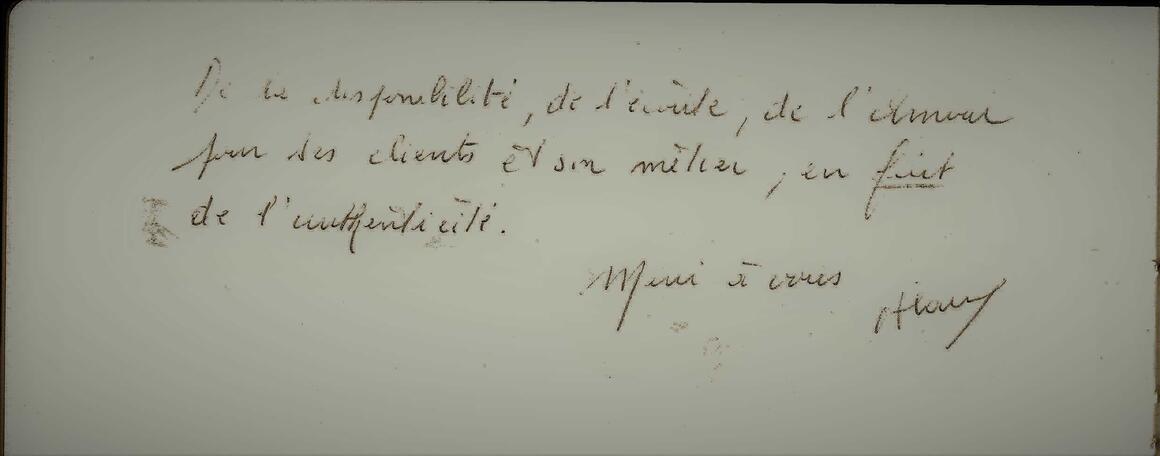 De la disponibilité, de l'écoute, de l'Amour
pour ses clients et son métier, en fait
de l'authenticité.
Merci à vous